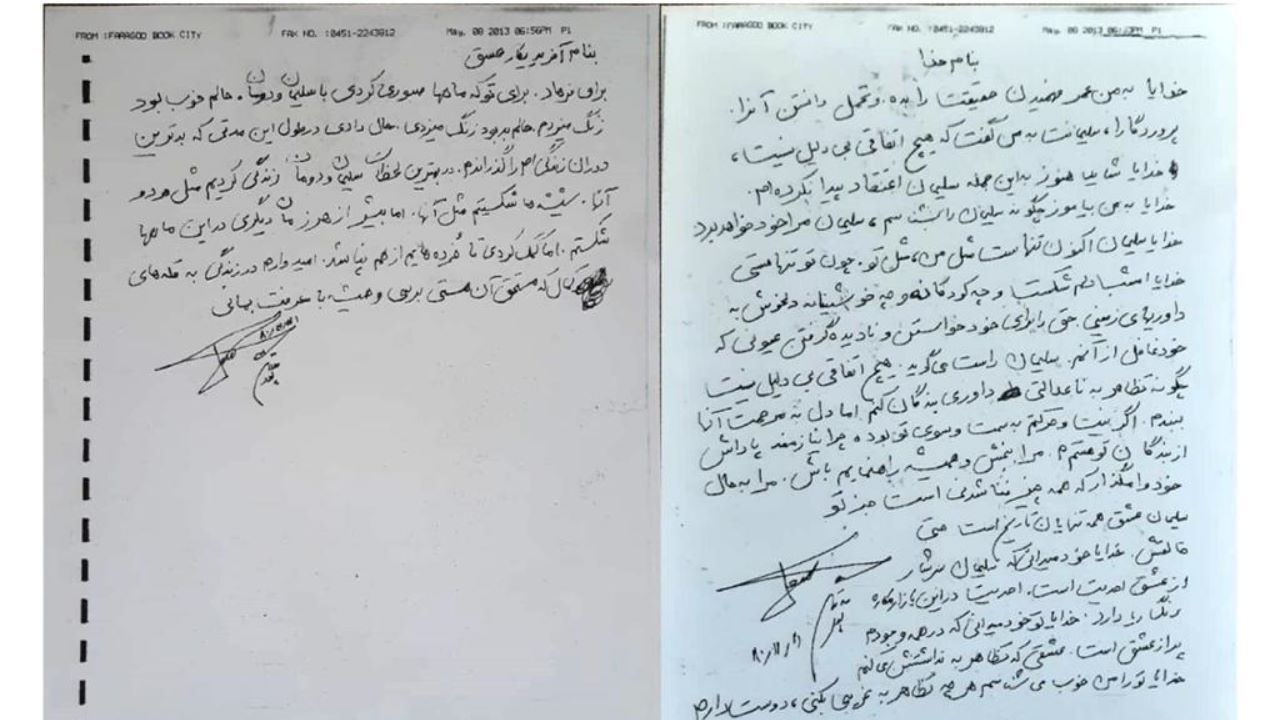 FROM :FARAGOO BOOK CITY FAX NO. :0451-2243912 May. 08 2013 06:56PM P1
بنام آفریدگار عشق
برای فرهاد. برای تو که ماهها صبوری کردی با سلیمان و دومان. حالم خوب بود
زنگ میزدم. حالم بد بود زنگ میزدی. حال دادی در طول این مدتی که بدترین
دوران زندگی ام را گذراندم. در بهترین لحظات سلیمان و دومان زندگی کردیم مثل هر دو
آنها. شیشه ها شکستیم مثل آنها. اما بیشتر از هر زمان دیگری در این ماهها
شکستم. اما کمک کردی تا خُرده هایم از هم نپاشد. امیدوارم در زندگی به قله های
کمال که مستحق آن هستی برسی و همیشه با معرفت بمانی
FROM :FARAGOO BOOK CITY FAX NO. :0451-2243912 May. 08 2013 P1
بنام خدا
خدایا به من عمر فهمیدن حقیقت را بده. و تحمل دانستن آنرا.
پروردگارا، سلیمانت به من گفت که هیچ اتفاقی بی دلیل نیست،
خدایا شاید هنوز به این جمله سلیمان اعتقاد پیدا نکرده ام.
خدایا به من بیاموز چگونه سلیمان را بشناسم، سلیمان مرا خود خواهد برد
خدایا سلیمان اکنون تنهاست مثل من، مثل تو. چون تو تنها هستی
خدایا امشب دلم شکست و چه کودکانه و چه خوشبینانه دلخوش به
داوریهای زمینی. حق را برای خود خواستن و نادیده گرفتن عیوبی که
خود غافل از آنم. سلیمان راست می گوید. هیچ اتفاقی بی دلیل نیست
چگونه تظاهر به ناعدالتی داوری بندگان کنم اما دل به مرحمت آنها
ببندم. اگر نیت و حرکتم به سمت و سوی تو بوده چرا نیازمند پاداش
از بندگان تو هستم. مرا ببخش و همیشه راهنمایم باش. مرا به حال
خود وامگذار که همه چیز فنا شدنی است جز تو
سلیمان عشق همه تنهایان تاریخ است حتی
خدایا خود میدانی که سلیمان سرشار
از عشق احدیت است. احدیت در این بازار مکاره
رنگ ریا دارد. خدایا تو خود میدانی که در همه وجودم
پر از عشق است. عشقی که تظاهر به نداشتنش می کنم
خدایا تو را من خوب می شناسم هر چه تظاهر به بکنی، دوستت دارم